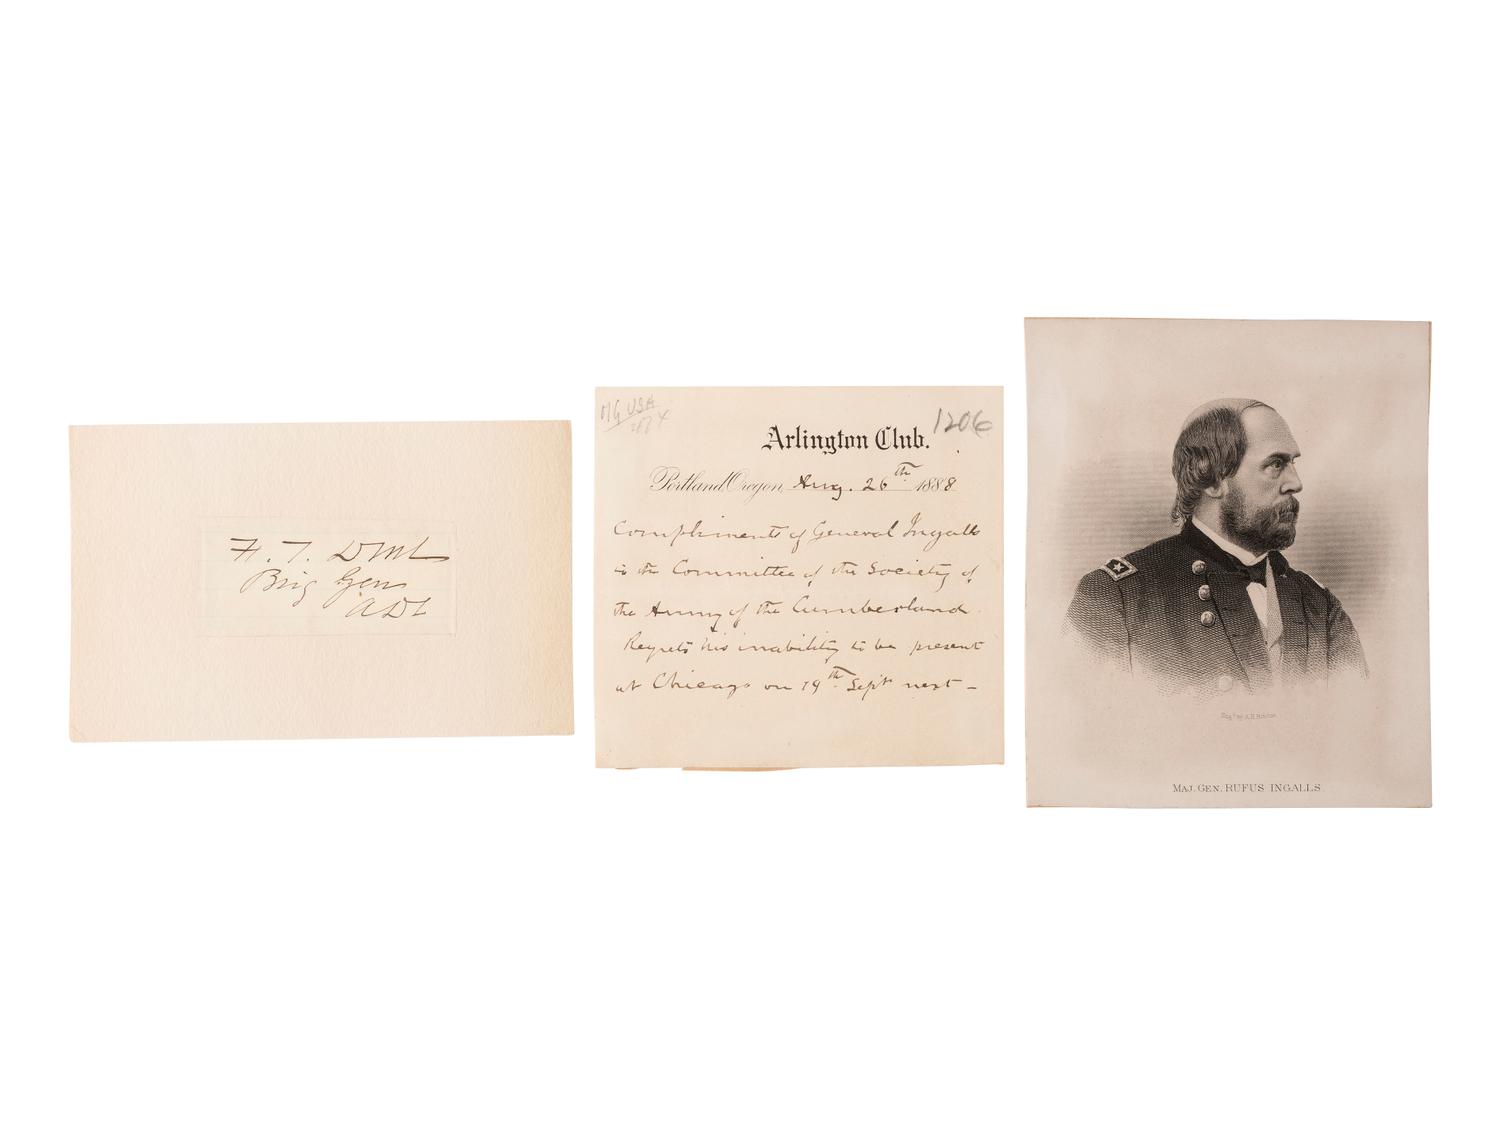 F. T. Dent
Brig Gen
ADC
MG USA
1206
Arlington Club.
Portland, Oregon, Aug. 26th 1888
Compliments of General Ingalls
to the Committee of the Society of
the Army of the Cumberland.
Regrets his inability to be present
at Chicago on 19th Sept next –
Eng'd by A.H. Ritchie
MAJ. GEN. RUFUS INGALLS.